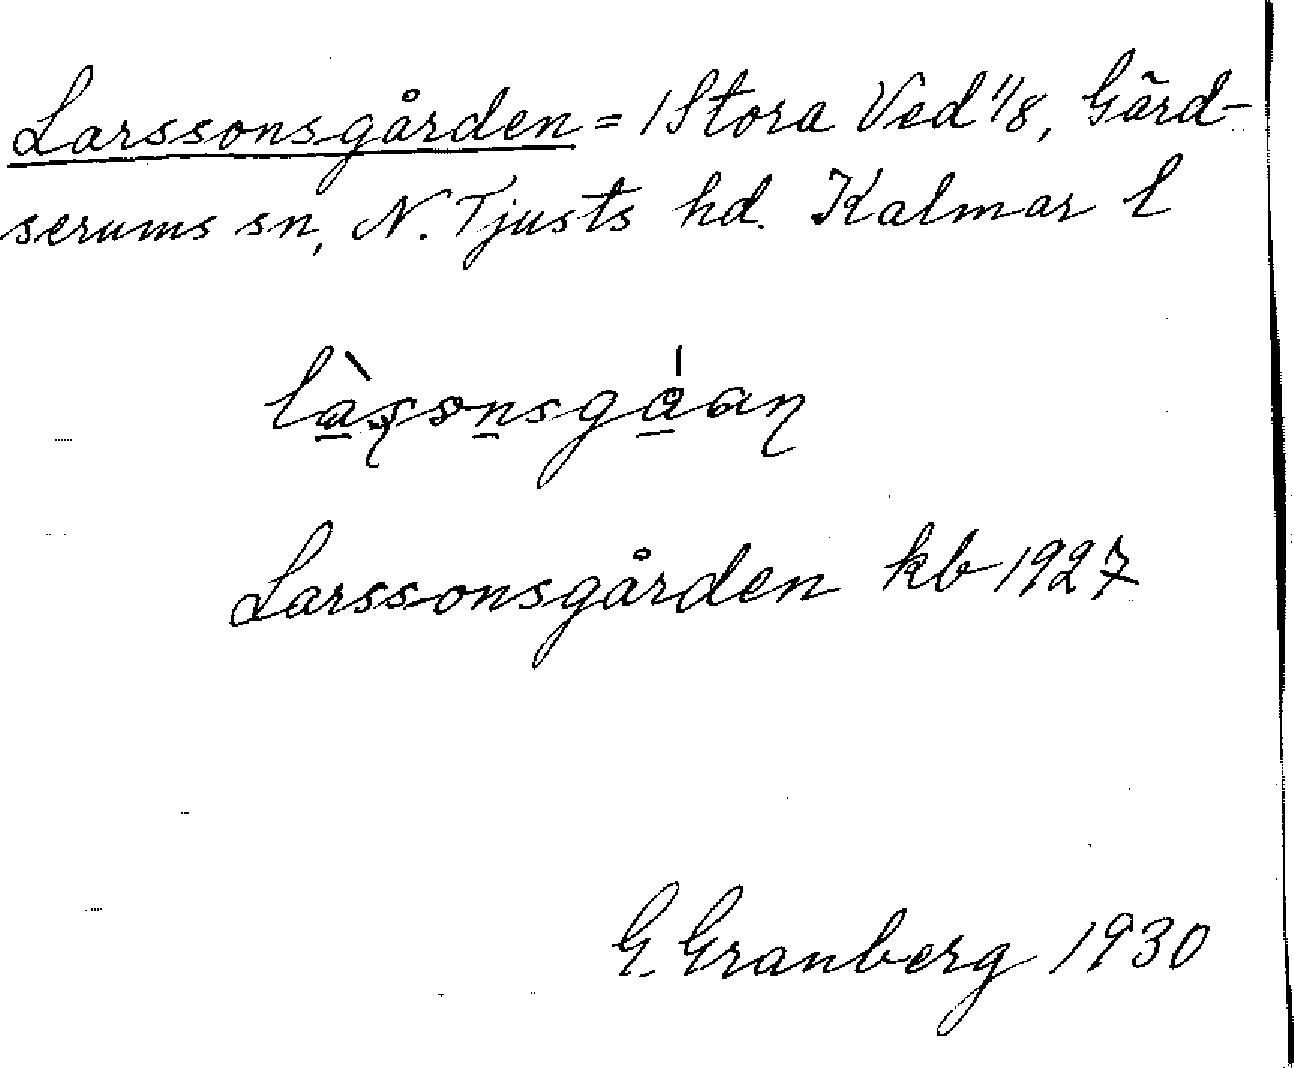 Larssonsgården = 1 Stora Ved 1/8, Gärd-
serums sn, N. Tjusts hd. Kalmar l
Larssonsgården kb 1927
G. Granberg 1930